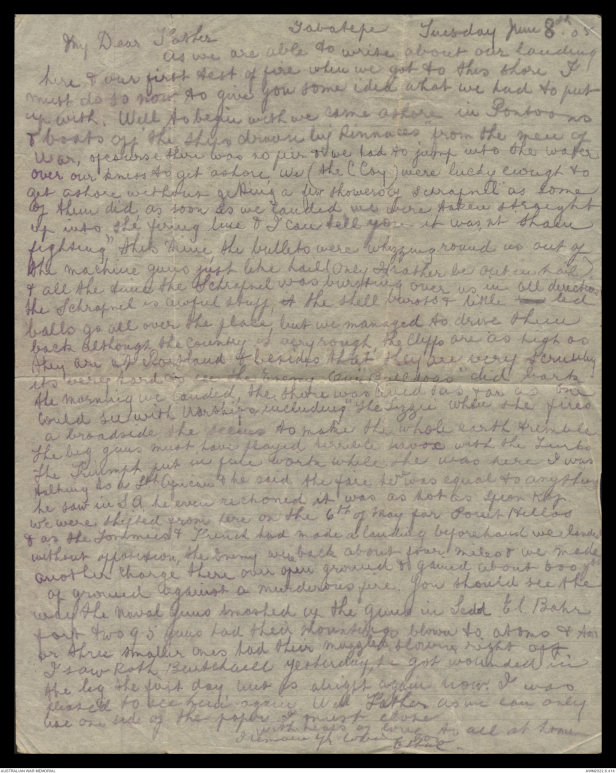 Gabatepe Tuesday June 8th 15
My Dear Father
As we are able to write about our landing
here & our first test of fire when we got to this shore I
must do so now to give you some idea what we had to put
up with. Well to begin with we came ashore in Pontoons
& boats off the ships drawn by Pinnaces from the men of
War, of course there was no pier & we had to jump into the water
over our knees to get ashore, We (the C Coy) were lucky enough to
get ashore without getting a few showers of schrapnel as some
of them did, as soon as we landed we were taken straight
up into the firing line & I can tell you it wasnt "sham
fighting" this time the bullets were whizzing round us out of
the machine guns just like hail (only I rather be out in hail)
& all the time the Schrapnel was bursting over us in all directions
the Schrapnel is awful stuff, the shell bursts & little lead
balls go all over the place, but we managed to drive them
back although the country is very rough the cliffs are as high as
they are at & besides that they are very scrubby
its very hard to see the Enemy. Our "Bulldogs" did bark
the morning we landed, the shore was lined as far as one
could see with Warships including "The Lizzie" when she fires
a broadside she seems to make the whole earth tremble
The big guns must have played terrible havoc with the Turks
The Triumph put in fine work while she was here I was
talking to a & he said the fire was equal to anything
he saw in S.A. he even reckoned it was as hot as Spion Kop.
We were shifted from here on the 6th of May for Point Hellas
& as the Tommies & French had made a landing beforehand we landed
without opposition, the Enemy was back about four miles & we made
another charge there over open ground & gained about 600 yds
of ground against a murderous fire. You should see the
way the naval guns smashed up the guns in Sedd El Bahr
fort two 9.5 guns had their mountings blown to atoms & two
or three smaller ones had their muzzles blown right off.
I saw Roth yesterday, he got wounded in
the leg the first day but is alright again now. I was
pleased to see him again. Well Father as we can only
use one side of the paper I must close
with heaps of love to all at home
I remain Yr
AUSTRALIAN WAR MEMORIAL